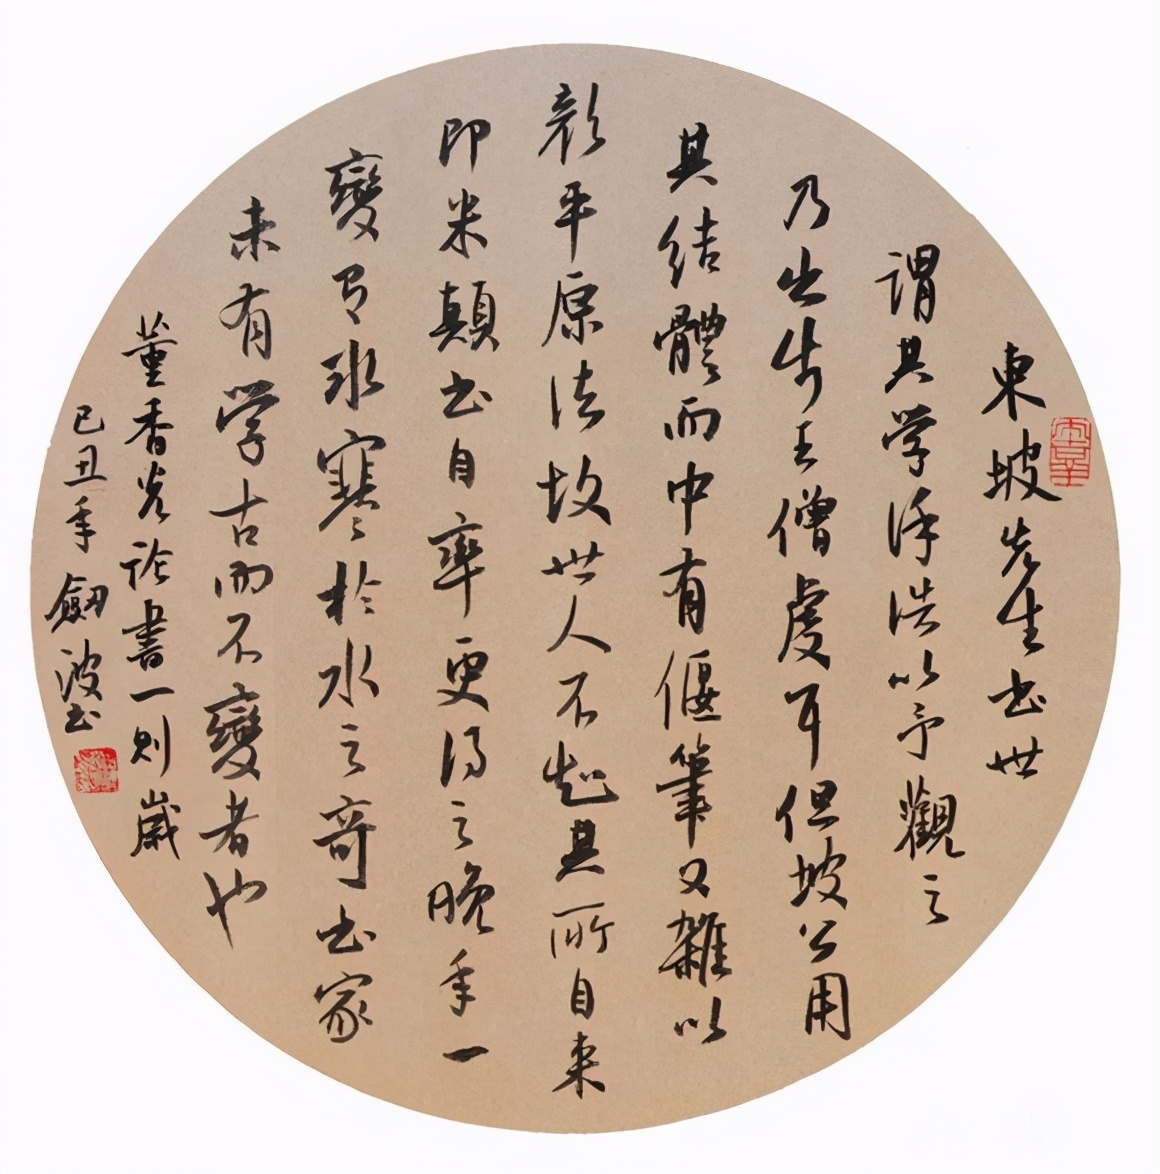 東坡先生書世
謂其學徐浩以予觀之
乃出於王僧虔耳但坡公用
其結體而中有偃筆又雜以
顏平原法故世人不知其所自來
即米顛書自率更得之晚年一
變有冰寒於水之奇書家
未有學古而不變者也
董香光論書一則歲
己丑年劍波書